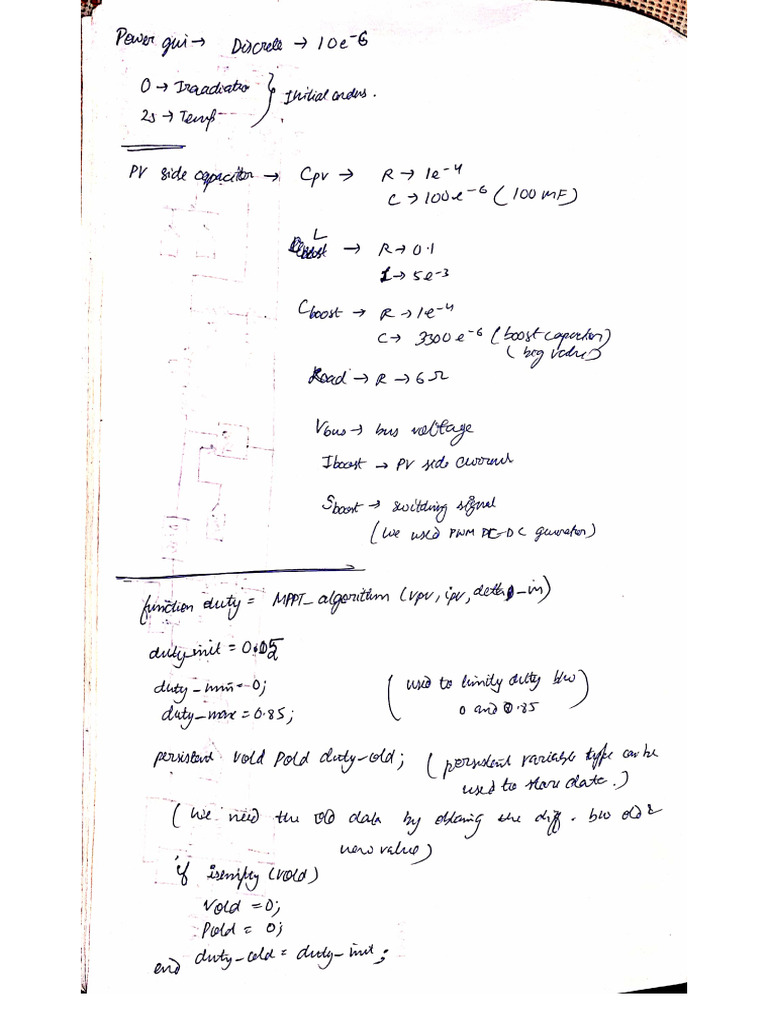 Power gui → Discrete → 10e-6
0 → Irradiatio } Initial orders.
2s → Temp
PV side capacitor → Cpv → R → 1e-4
C → 100e-6 (100 MF)
L boost → R → 0.1
L → 5e-3
Cboost → R → 1e-4
C → 3300e-6 (boost capacitor)
(big value)
Load → R → 6Ω
Vbus → bus voltage
Iboost → PV side current
Sboost → switching signal
(We used PWM DC-DC generator)
function duty = MPPT_algorithm (vpv, ipv, delta_in)
duty_init =
duty_min = 0; (used to limity duty b/w
duty_max = 0.85; 0 and 0.85)
persistent Vold Pold duty_old; (persistent variable type can be
used to store data.)
(We need the old data by obtaing the diff. b/w old &
new value)
if isempty (Vold)
Vold = 0;
Pold = 0;
duty_old = duty_init;
end